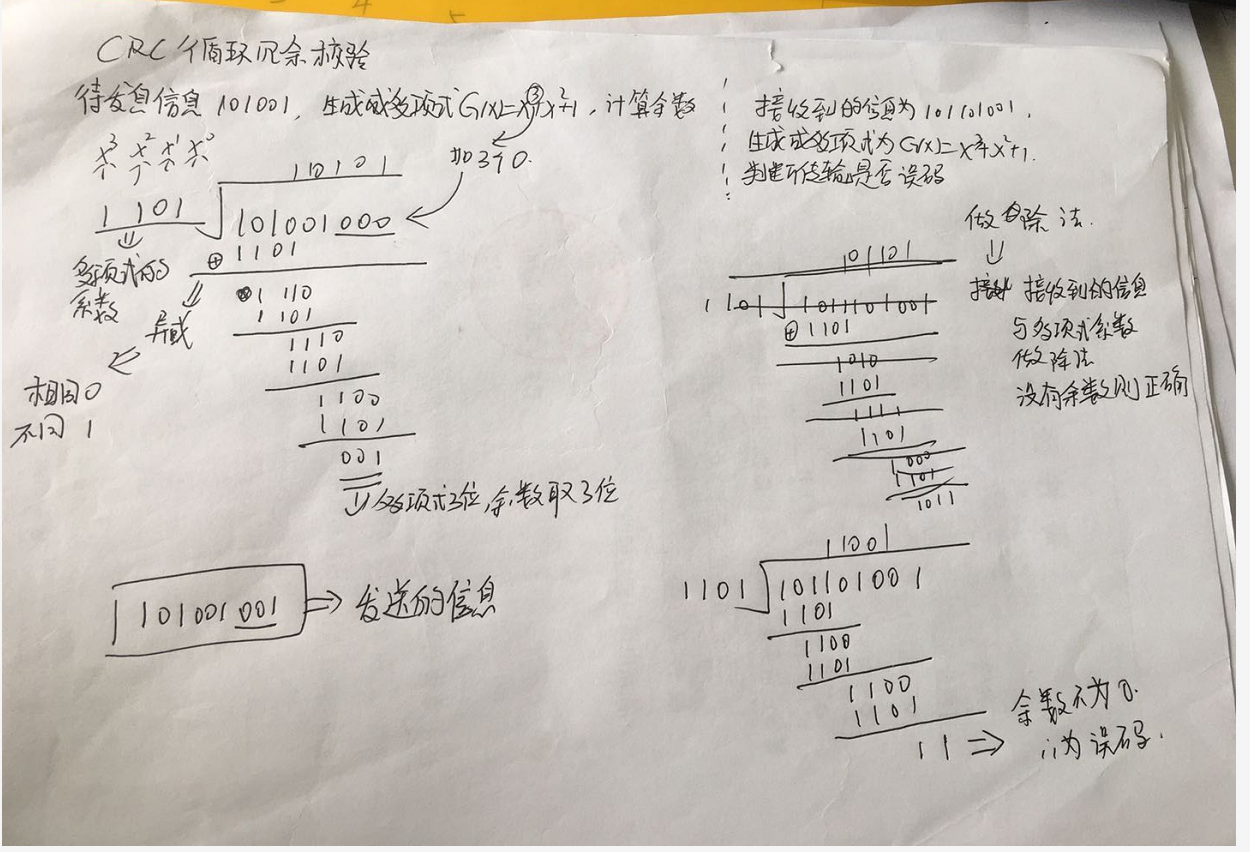 CRC 循环冗余校验
待发息信息 101001, 生成成多项式G(x)=x³+x²+1, 计算余数
x³ x² x¹ x⁰
加3个0.
11010 1
1101
101001000
⊕ 1101
多项式的
系数
异或
相同0
不同 1
1 110
1 101
1110
1101
1100
1101
001
多项式3位,余数取3位
101001001
发送的信息
接收到的信息为101101001.
生成成多项式为G(x)=x³+x²+1.
判断下传输是否误码
做除法.
接收到的信息
与多项式系数
做除法
没有余数则正确
101101
1101
101101001
⊕1101
1010
1101
1111
1101
1000
1101
1011
11001
1101
101101001
1101
1100
1101
1100
1101
11
余数不为0.
∴为误码.